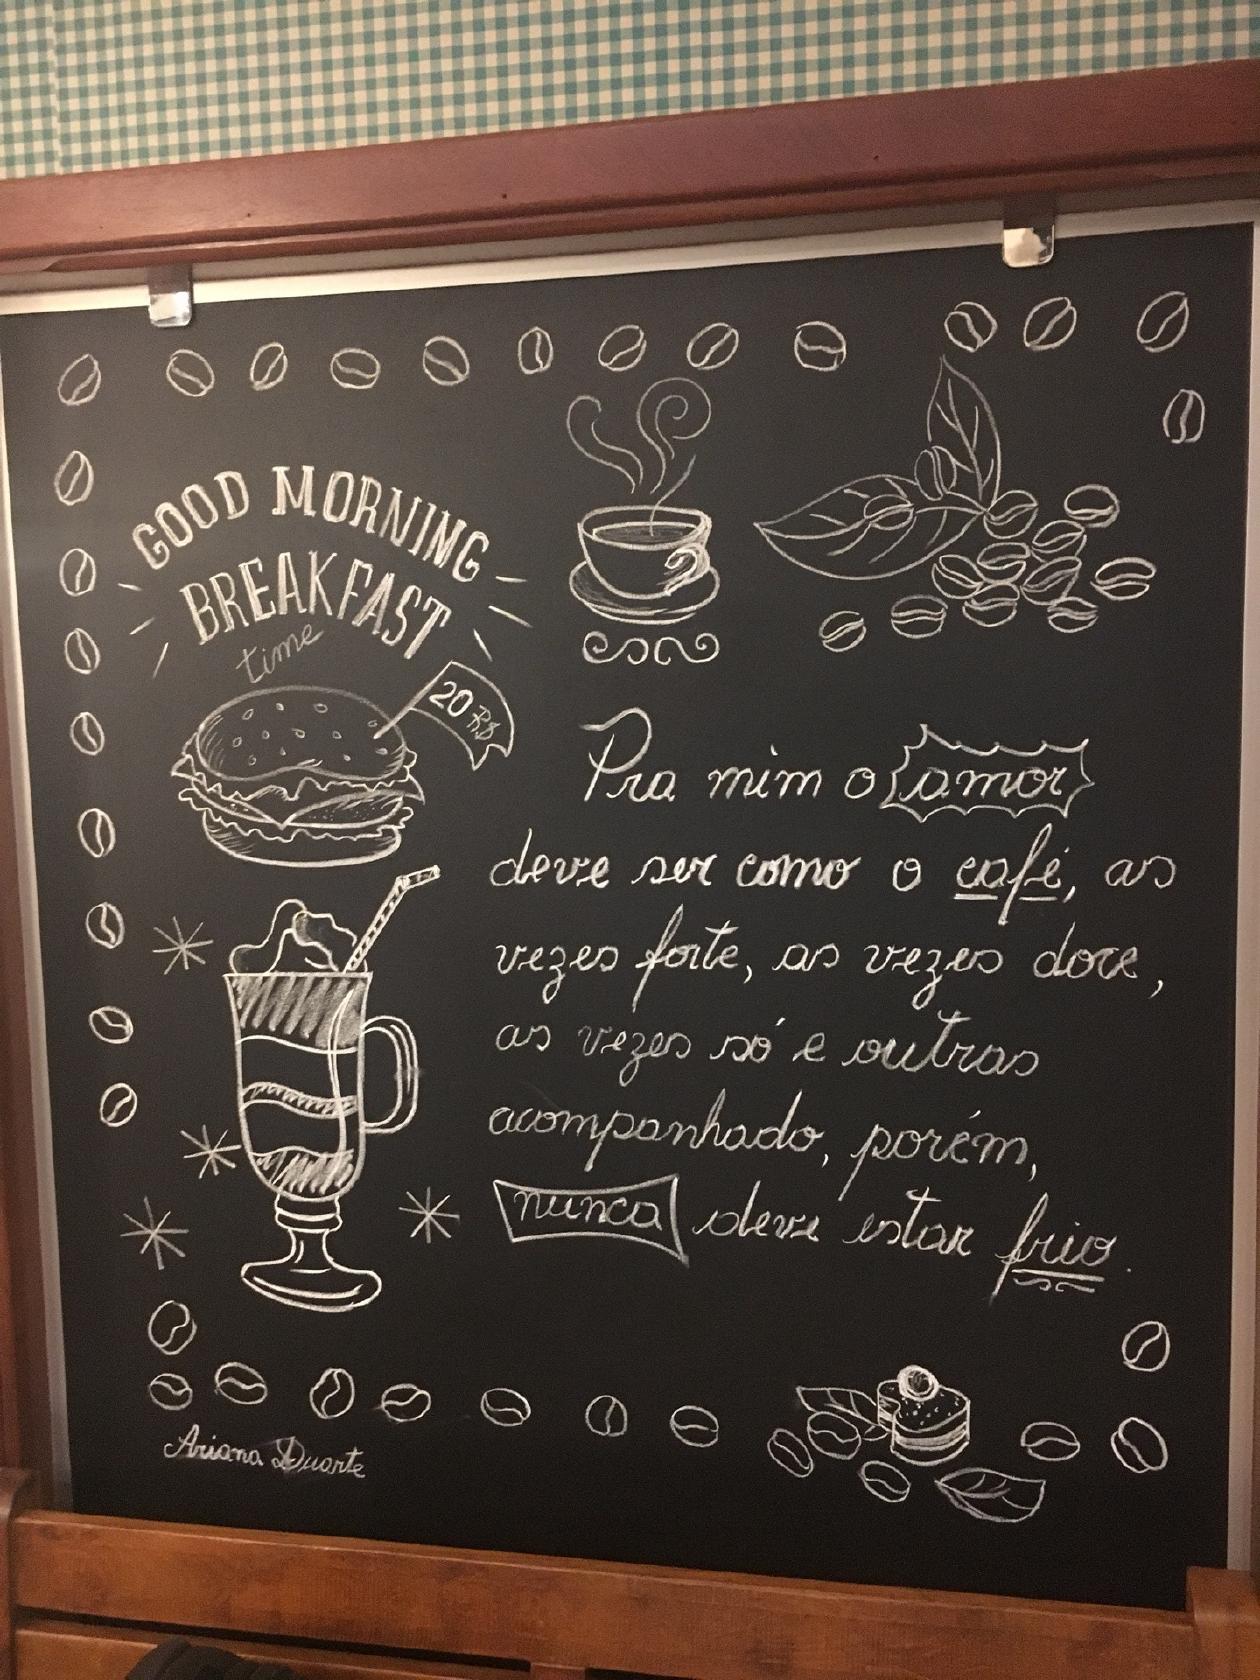 GOOD MORNING
BREAKFAST
time
20 R$
Pra mim o amor
deve ser como o café, as
vezes forte, as vezes doce,
as vezes só e outras
acompanhado, porém,
nunca deve estar frio.
Ariana Duarte